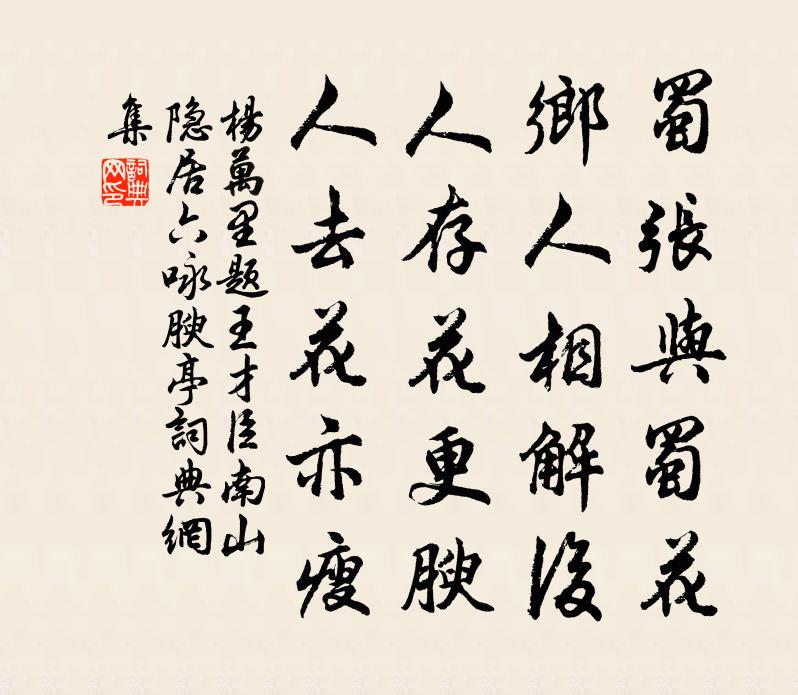 蜀張與蜀花
鄉人相解後
人存花更腴
人去花亦瘦
楊萬里題王才臣南山
隐居六咏腴亭詞典網
集
詞典
网印